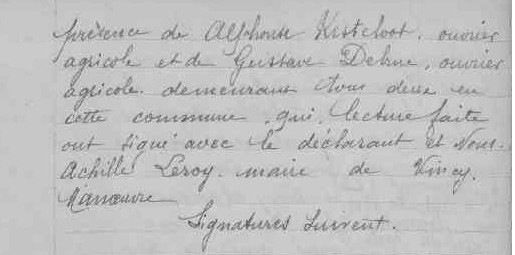 présence de Alphonse Kistcloot, ouvrier
agricole et de Gustave Dehne, ouvrier
agricole demeurant tous deux en
cette commune, qui, lecture faite
ont signé avec le déclarant et Nous.
Achille Leroy. maire de Vincy.
Manœuvre
Signatures suivent.